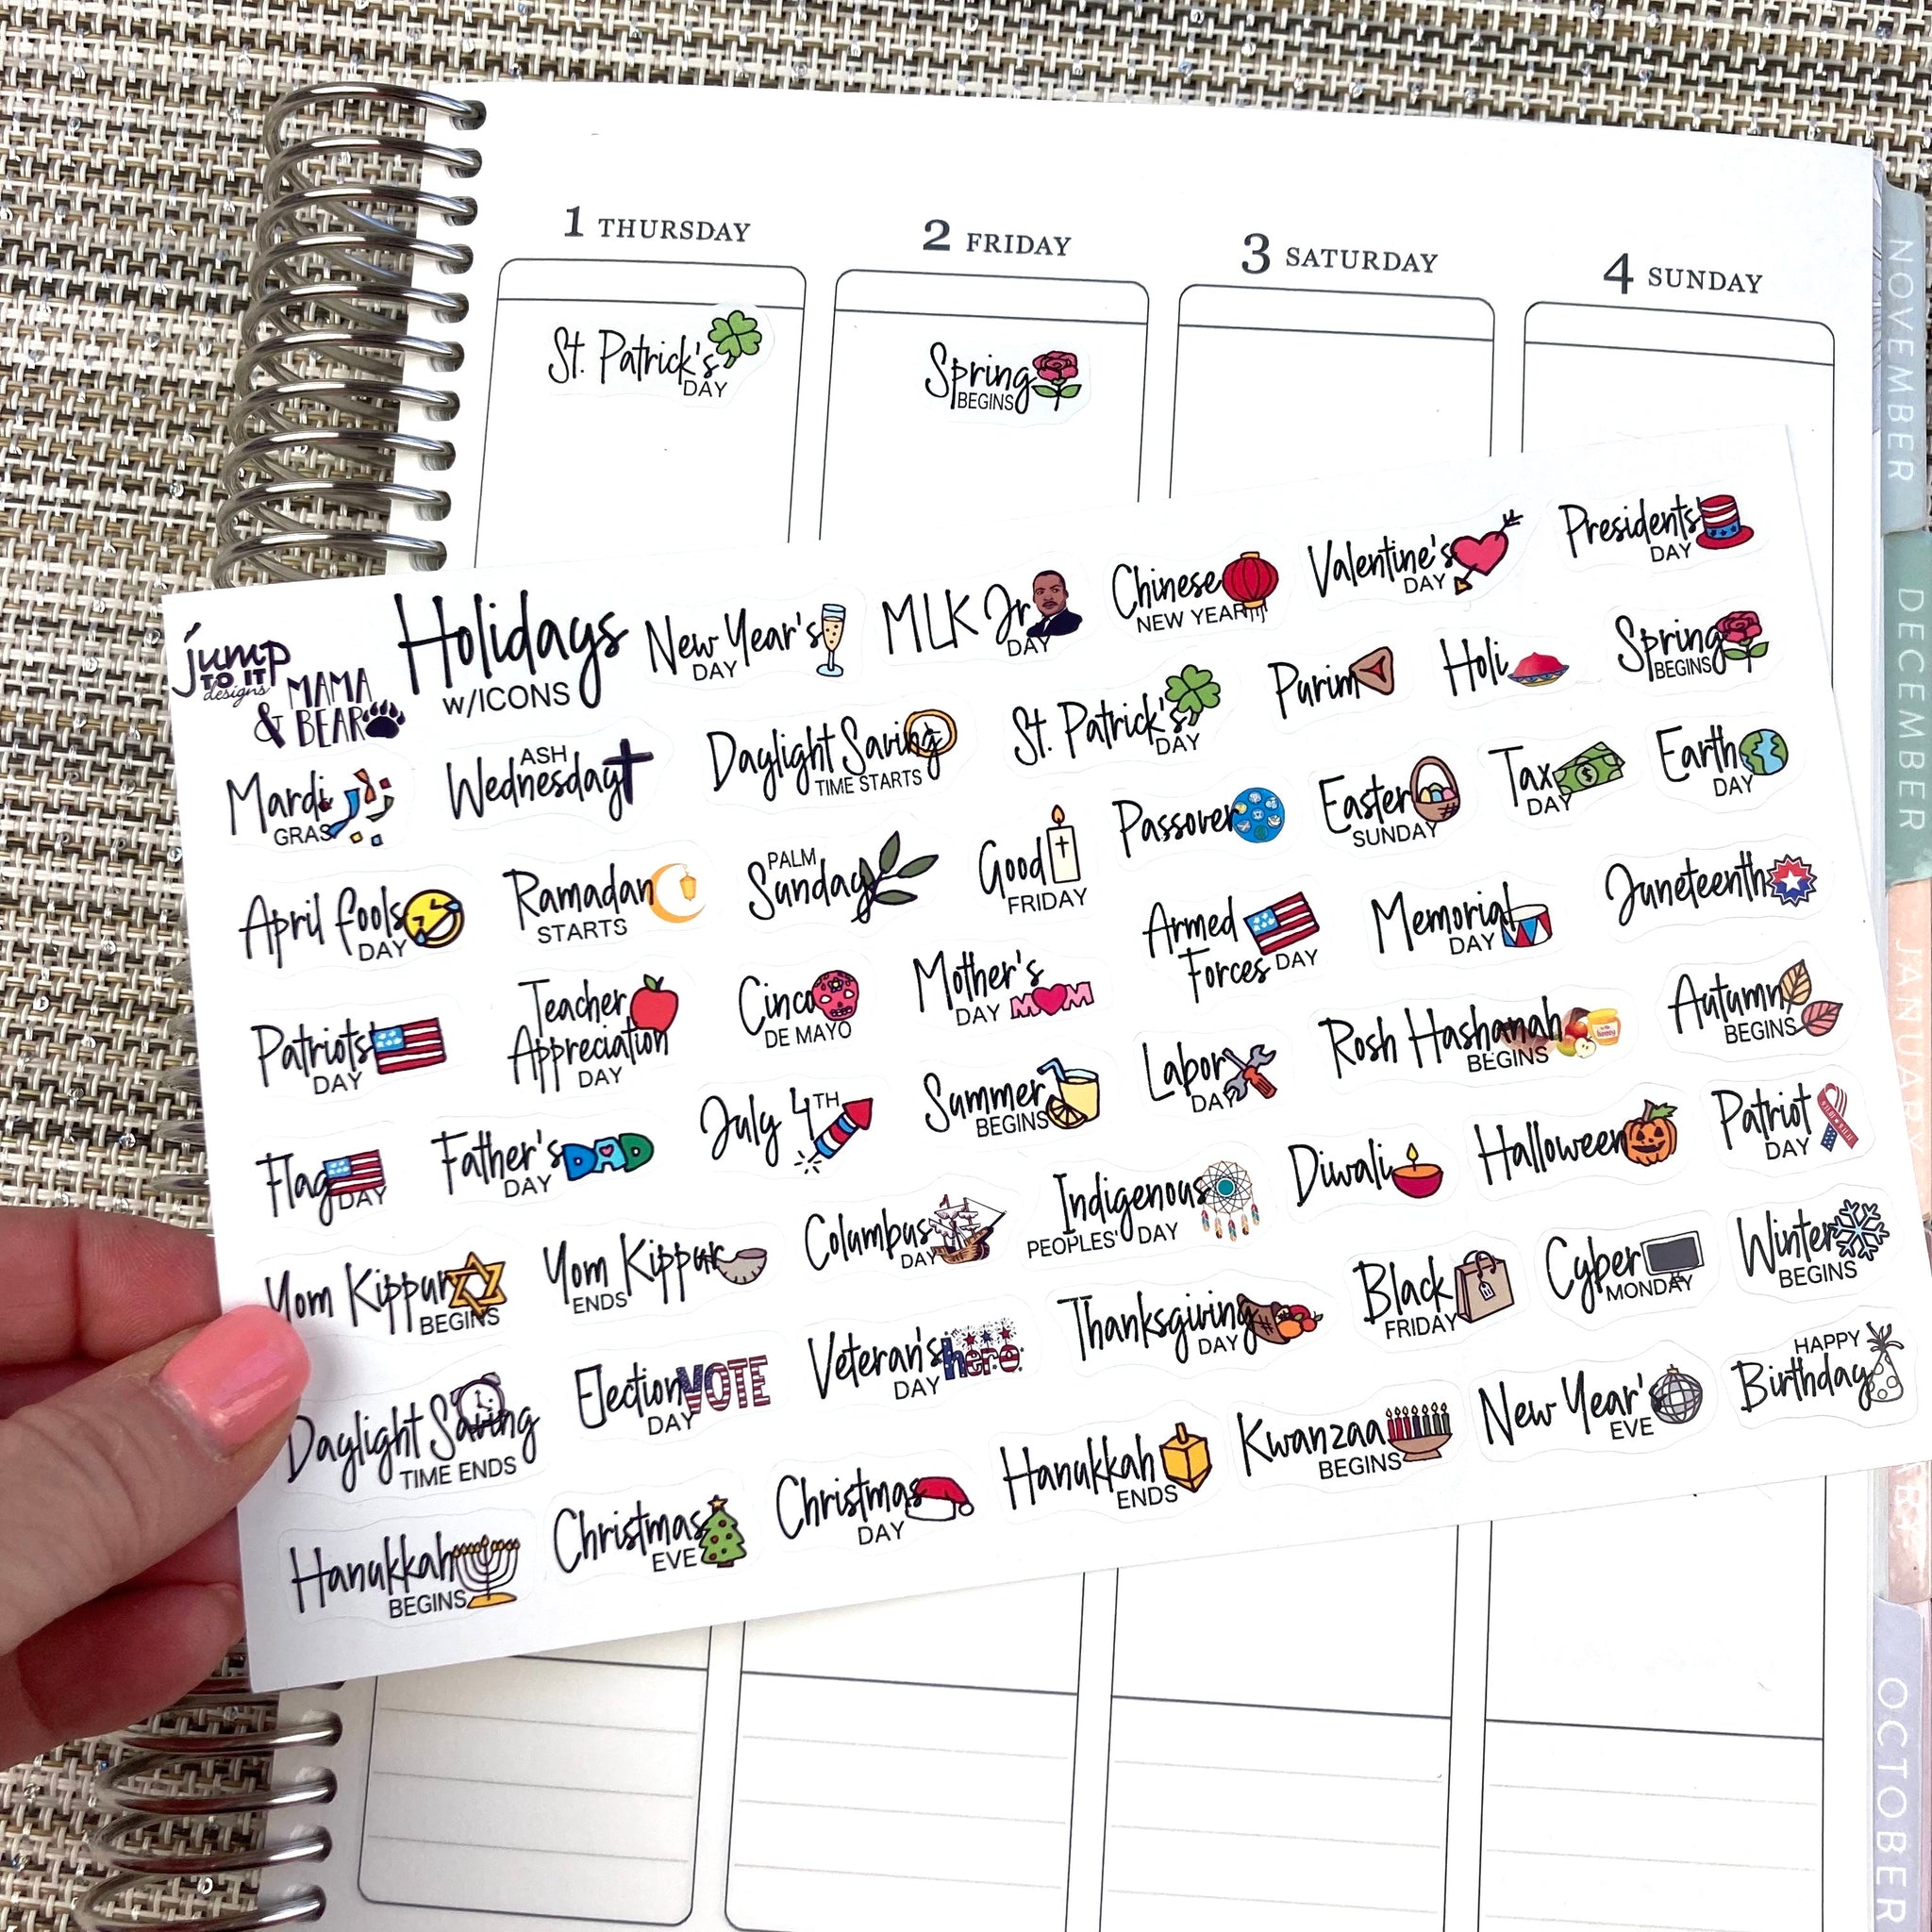 1 THURSDAY
2 FRIDAY
3 SATURDAY
4 SUNDAY
St. Patrick's
DAY
Spring
BEGINS
NOVEMBER
DECEMBER
JANUARY
OCTOBER
jump
TO IT
designs
MAMA
& BEAR
Holidays
w/ICONS
New Year's
DAY
MLK Jr
DAY
Chinese
NEW YEAR
Valentine's
DAY
Presidents'
DAY
Mardi
GRAS
ASH
Wednesday
Daylight Saving
TIME STARTS
St. Patrick's
DAY
Purim
Holi
Spring
BEGINS
April fools
DAY
Ramadan
STARTS
PALM
Sunday
Good
FRIDAY
Passover
Easter
SUNDAY
Tax
DAY
Earth
DAY
Patriots
DAY
Teacher
Appreciation
DAY
Cinco
DE MAYO
Mother's
DAY MOM
Armed
Forces DAY
Memorial
DAY
Juneteenth
Flag
DAY
Father's DAD
DAY
July 4TH
Summer
BEGINS
Labor
DAY
Rosh Hashanah
BEGINS
honey
Autumn
BEGINS
Yom Kippur
BEGINS
Yom Kippur
ENDS
Columbus
DAY
Indigenous
PEOPLES' DAY
Diwali
Halloween
Patriot
DAY
Daylight Saving
TIME ENDS
Election VOTE
DAY
Veteran's hero
DAY
Thanksgiving
DAY
Black
FRIDAY
Cyber
MONDAY
Winter
BEGINS
Hanukkah
BEGINS
Christmas
EVE
Christmas
DAY
Hanukkah
ENDS
Kwanzaa
BEGINS
New Year's
EVE
HAPPY
Birthday